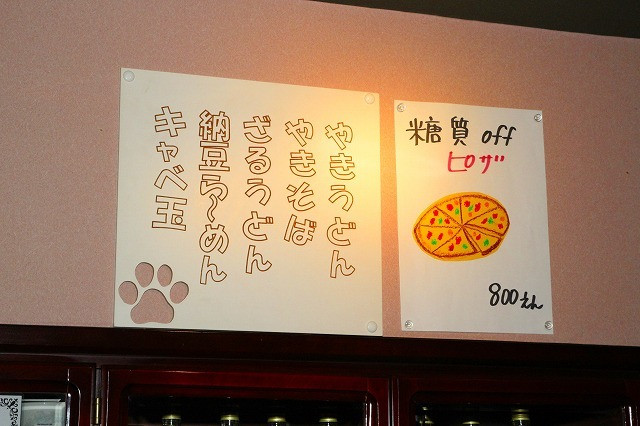 やきうどん
やきそば
ざるうどん
納豆ら〜めん
キャベ玉
糖質off
ピザ
800えん